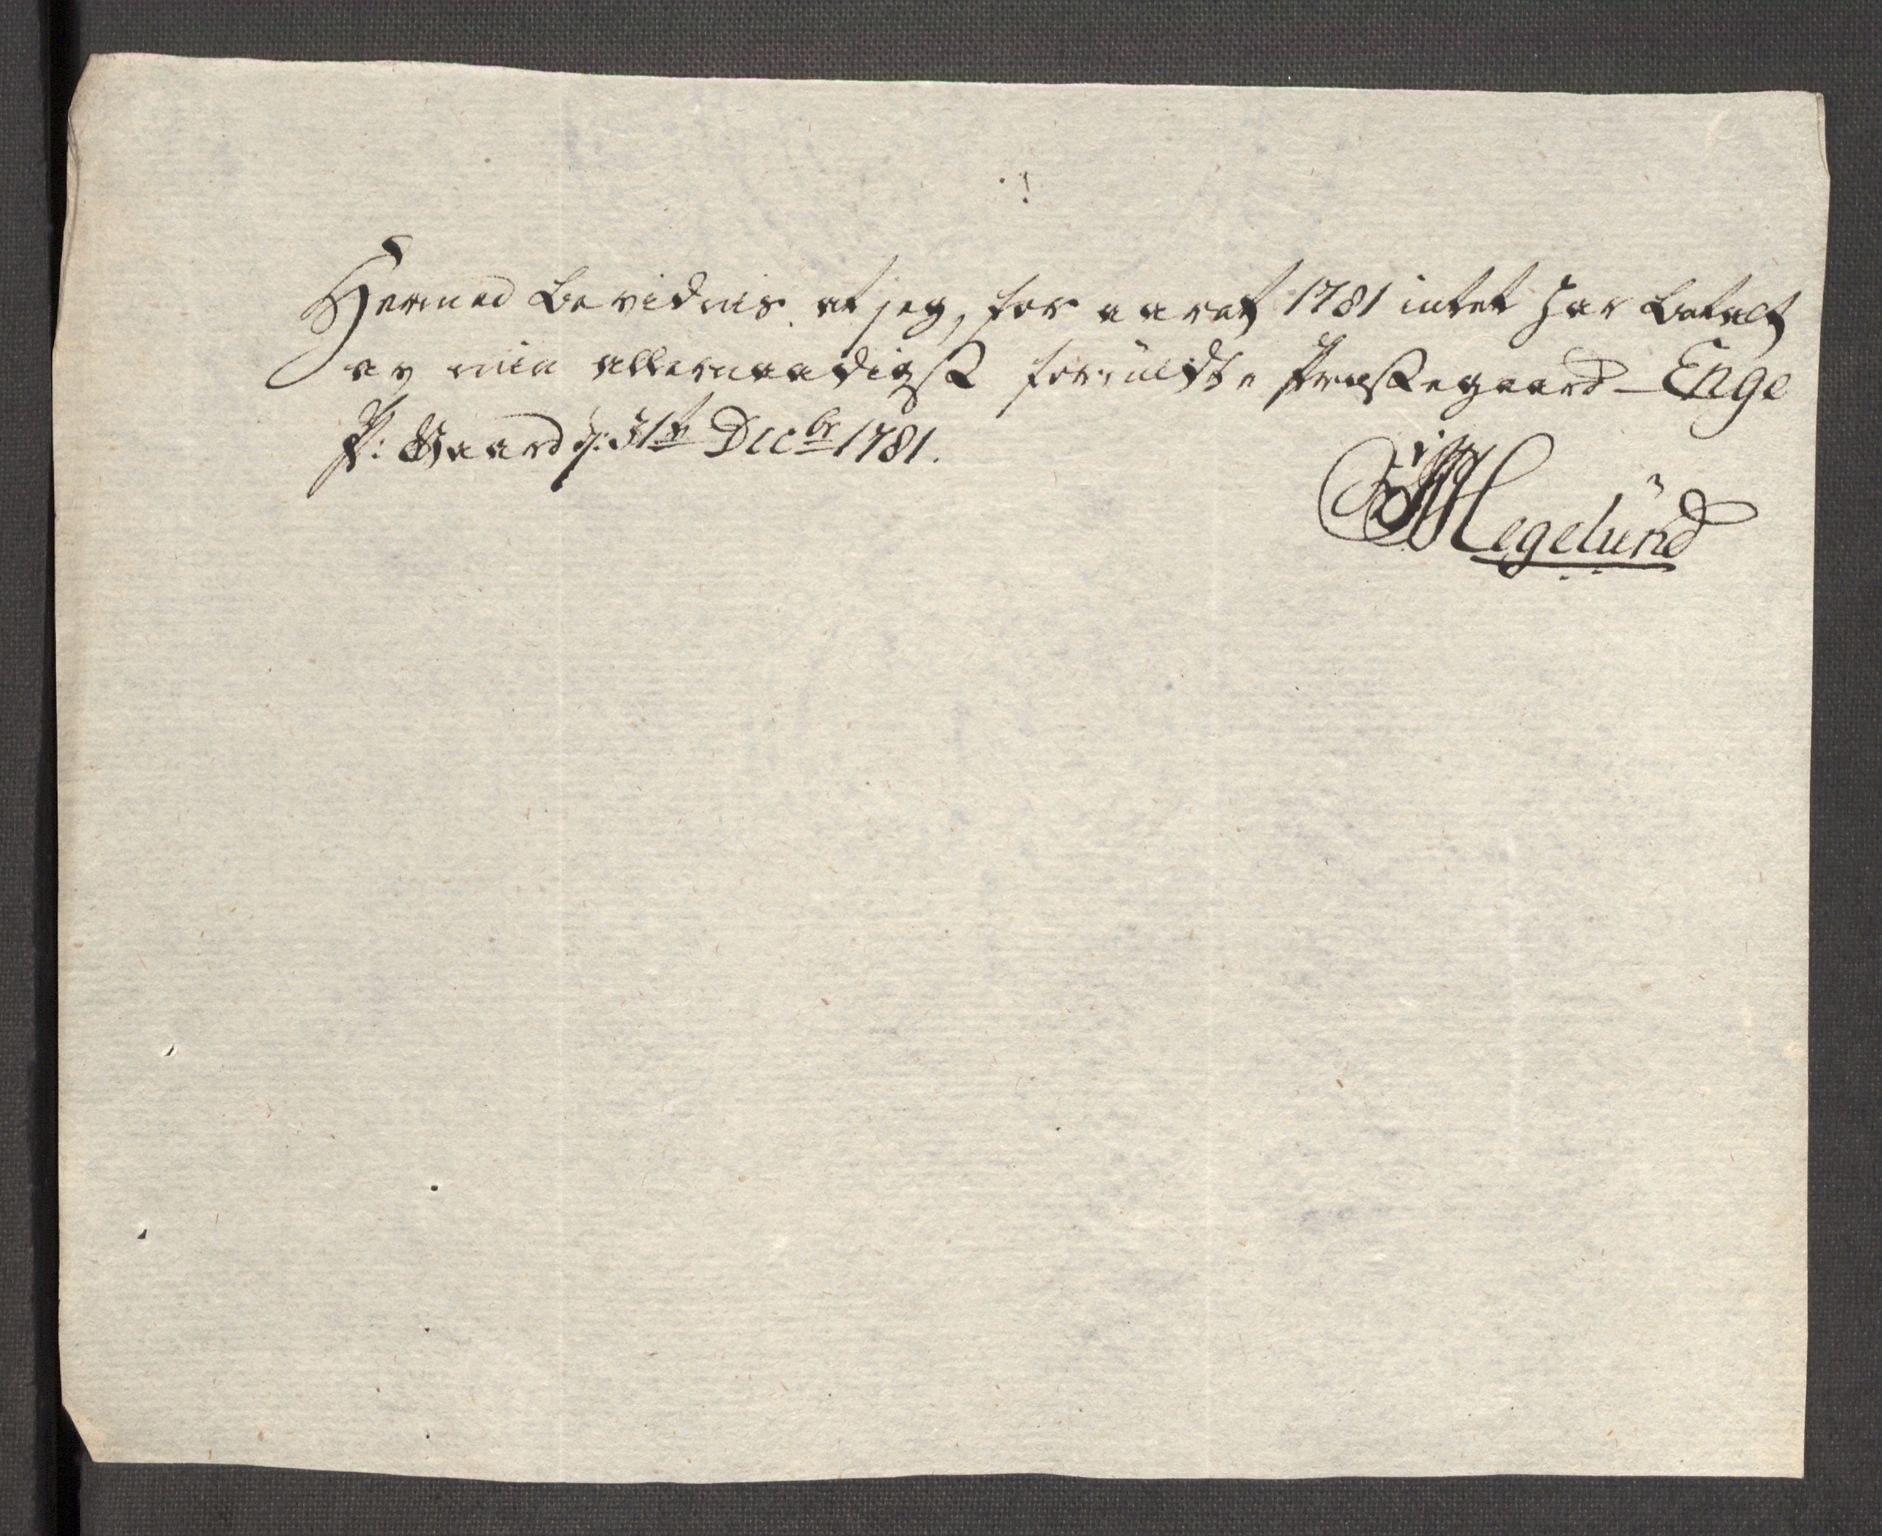 Hermed Bevidnis at jeg, for aaret 1781 intet har betalt
av min allernaadigst forundte Præstegaard – Enge
P: Gaard d: 31te Decbr 1781.
Hegelund